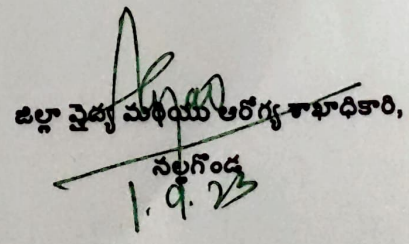 జిల్లా వైద్య మరియు ఆరోగ్య శాఖాధికారి,
నల్లగొండ
1.9.23